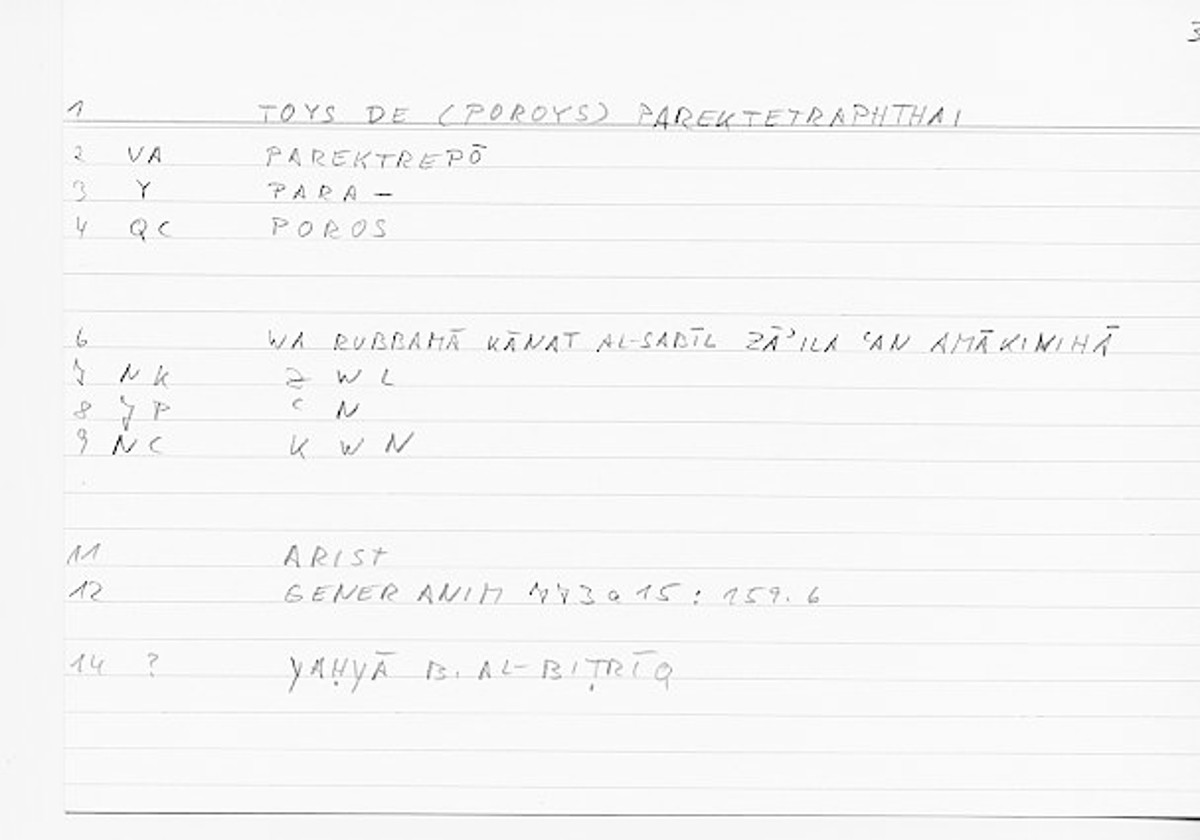 3
1 TOYS DE (POROYS) PAREKTETRAPHTHAI
2 VA PAREKTREPŌ
3 Y PARA —
4 QC POROS
6 WA RUBBAMĀ KĀNAT AL-SABĪL ZĀʾILA ʿAN AMĀKINIHĀ
7 NK Z W L
8 JP ʿ N
9 NC K W N
11 ARIST
12 GENER ANIM 773a15 : 159.6
14 ? YAḤYĀ B. AL-BIṬRĪQ